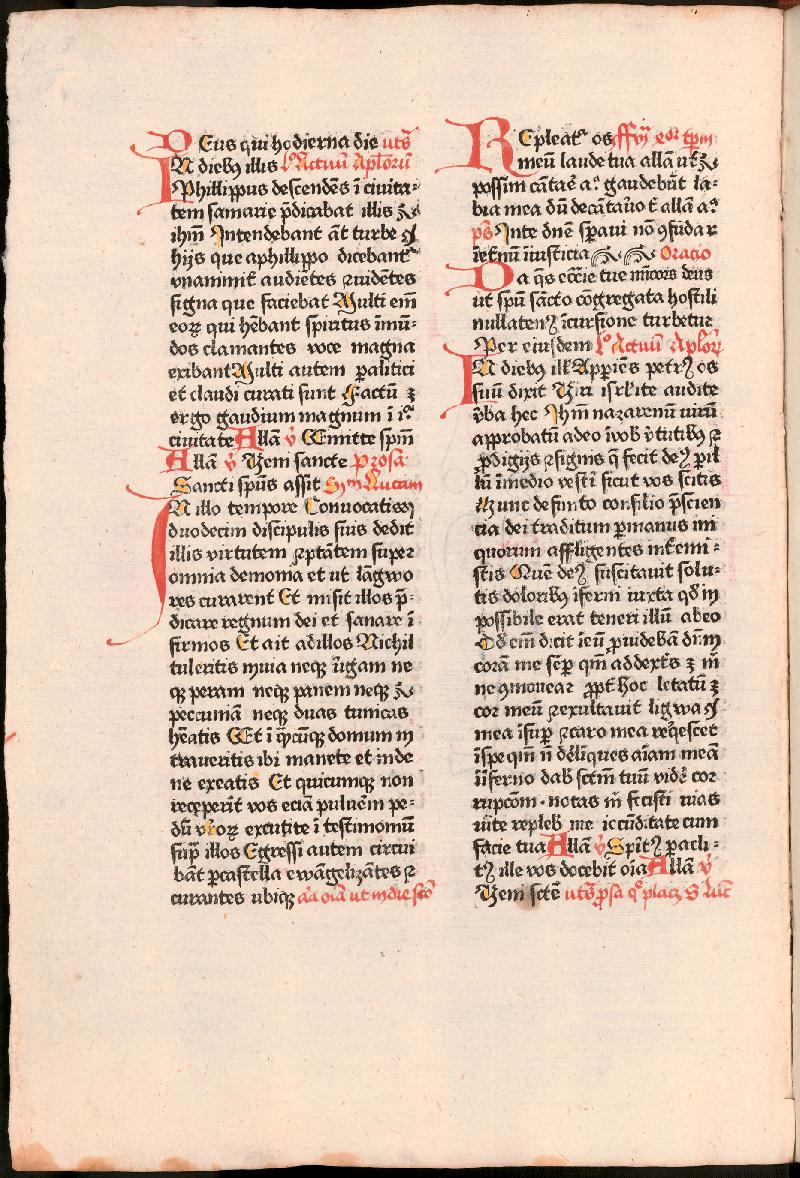 Deus qui hodierna die uts̄
In diebꝰ illis lº Actuū Aplorū
Phillippus descendēs ī ciuita⸗
tem samarie p̄dicabat illis
ihm̄ Intendebant āt turbe
hijs que aphillippo dicebantᵉ
vnanimit̄ audiētes ꝛuidētes
signa que faciebat Multi em̄
eoꝝ qui hēbant spiritus īmū⸗
dos clamantes voce magna
exibant Multi autem paralitici
et claudi curati sunt Factū ꝫ
ergo gaudium magnum ī i
ciuitate Allā v̄ Emitte spm̄
Allā v̄ Veni sancte Prosa
Sancti spūs assit Lucam
In illo tempore Conuocatis
duodecim discipulis suis dedit
illis virtutem ꝛptātem super
omnia demonia et ut lāgwo
res curarent Et misit illos p̄⸗
dicare regnum dei et sanare ī
firmos Et ait adillos Nichil
tuleritis inuia neqꝫ v̄gam ne
qꝫ peram neqꝫ panem neqꝫ
peccuniā neqꝫ duas tunicas
hēatis Et ī qūcūqꝫ domum in
traueritis ibi manete et inde
ne exeatis Et quicumqꝫ non
receperīt vos eciā puluēm pe⸗
dū vr̄oꝝ excutite ī testimoniū
suꝑ illos Egressi autem circui
bāt ꝑcastella ewāgelizātes ꝛ
curantes ubiqꝫ alia oīa ut in die
Repleatᵉ os
meū laude tua allā
possim cātare aᵃ gaudebūt la⸗
bia mea dū decātauero t̄ allā aᵃ
ps̄ Inte dnē speraui nō ꝯfundar
īet̄nū iniusticia Oracio
Da qs̄ eccīe tue mīcors deus
ut spū sācto cōgregata hostili
nullatenꝰ īcursione turbetur
Per eiusdem lº Actuū Aplorū
In diebꝰ ill̄ Apperiēs petrꝰ os
suū dixit Viri isrl̄ite audite
v̄ba hec Ihm̄ nazarenū uirū
approbatū adeo ī vob v̄tutibꝰ ꝛ
ꝓdigijs ꝛsignis q̄ fecit deꝰ ꝑ il
lū īmedio vest̄i sicut vos scitis
Hunc definito consilio p̄scien
cia dei traditum ꝑmanus ini
quorum affligentes int̄emi⸗
stis Quē deꝰ suscitauit solu⸗
tis doloribꝰ īferni iuxta qd̄ in
possibile erat teneri illū abeo
Dd em̄ dicit ī eū ꝓuidebā dn̄m
corā me semꝑ qm̄ addext̄s ꝫ m̄
ne ꝯmouear ꝓpt̄ hoc letatū ꝫ
cor meū ꝛexultauit ligwa
mea īsuꝑ ꝛcaro mea reqesc̄et
īspe qm̄ n̄ delīques aīam meā
īīferno dab sctm̄ tuū videre cor
rupcōm notas m̄ fecisti uias
uite repleb me iocūditate cum
facie tua Allā v̄ Spiritꝰ paracli⸗
tꝰ ille vos docebit oīa Allā v̄
Veni sctē uts̄ ꝓsa q̄ placꝫ